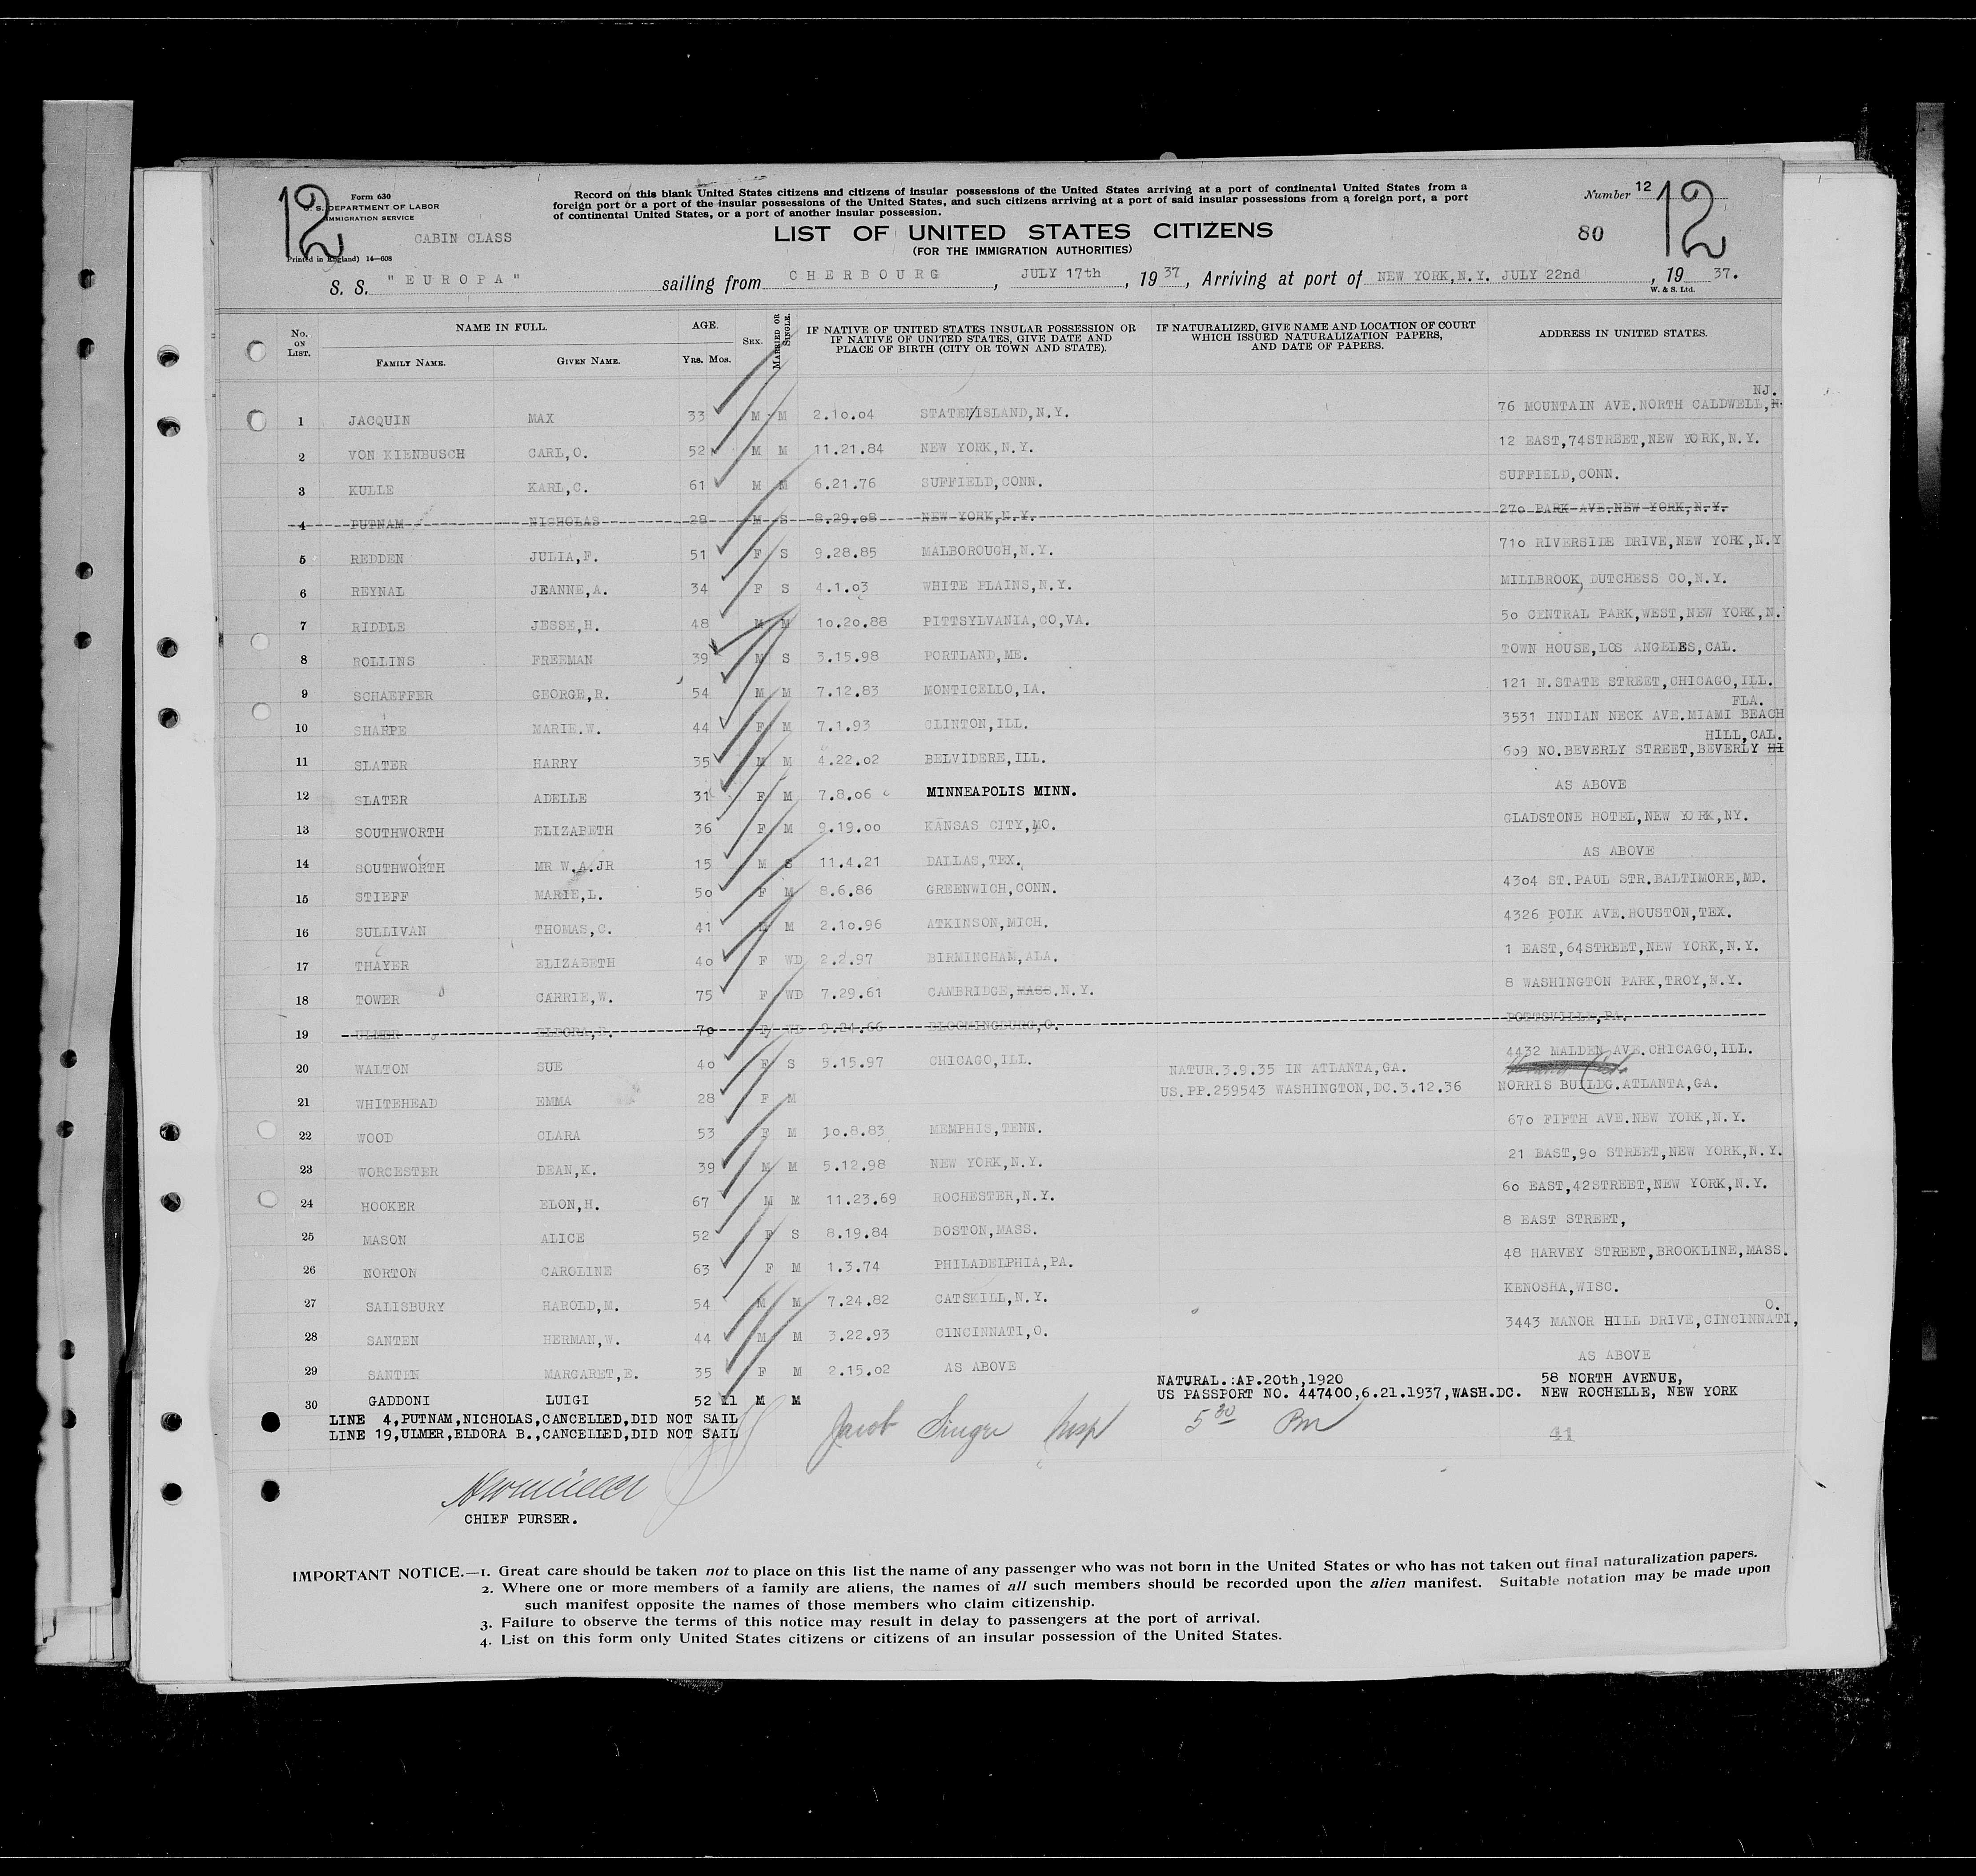 12
Form 630
U. S. DEPARTMENT OF LABOR
IMMIGRATION SERVICE
Printed in England) 14—608
CABIN CLASS
Record on this blank United States citizens and citizens of insular possessions of the United States arriving at a port of continental United States from a
foreign port or a port of the insular possessions of the United States, and such citizens arriving at a port of said insular possessions from a foreign port, a port
of continental United States, or a port of another insular possession.
LIST OF UNITED STATES CITIZENS
(FOR THE IMMIGRATION AUTHORITIES)
Number 12
80
12
S. S. "EUROPA" sailing from CHERBOURG, JULY 17th, 1937, Arriving at port of NEW YORK,N.Y. JULY 22nd, 1937.
W. & S. Ltd.
No. ON LIST. NAME IN FULL. FAMILY NAME. GIVEN NAME. AGE. YRS. MOS. SEX. MARRIED OR SINGLE. IF NATIVE OF UNITED STATES INSULAR POSSESSION OR IF NATIVE OF UNITED STATES, GIVE DATE AND PLACE OF BIRTH (CITY OR TOWN AND STATE). IF NATURALIZED, GIVE NAME AND LOCATION OF COURT WHICH ISSUED NATURALIZATION PAPERS, AND DATE OF PAPERS. ADDRESS IN UNITED STATES.
NJ.
1 JACQUIN MAX 33 M M 2.10.04 STATEN/ISLAND,N.Y. 76 MOUNTAIN AVE.NORTH CALDWELL,N.
2 VON KIENBUSCH CARL,O. 52 M M 11.21.84 NEW YORK,N.Y. 12 EAST,74STREET,NEW YORK,N.Y.
3 KULLE KARL,C. 61 M M 6.21.76 SUFFIELD,CONN. SUFFIELD,CONN.
4 PUTNAM NICHOLAS 28 M S 8.29.08 NEW YORK,N.Y. 270 PARK AVE.NEW YORK,N.Y.
5 REDDEN JULIA,F. 51 F S 9.28.85 MALBOROUGH,N.Y. 710 RIVERSIDE DRIVE,NEW YORK,N.Y
6 REYNAL JEANNE,A. 34 F S 4.1.03 WHITE PLAINS,N.Y. MILLBROOK, DUTCHESS CO,N.Y.
7 RIDDLE JESSE,H. 48 M M 10.20.88 PITTSYLVANIA,CO,VA. 50 CENTRAL PARK,WEST,NEW YORK,N.
8 ROLLINS FREEMAN 39 M S 3.15.98 PORTLAND,ME. TOWN HOUSE,LOS ANGELES,CAL.
9 SCHAEFFER GEORGE,R. 54 M M 7.12.83 MONTICELLO,IA. 121 N.STATE STREET,CHICAGO,ILL.
FLA.
10 SHARPE MARIE.W. 44 F M 7.1.93 CLINTON,ILL. 3531 INDIAN NECK AVE.MIAMI BEACH
HILL,CAL.
11 SLATER HARRY 35 M M 4.22.02 BELVIDERE,ILL. 609 NO.BEVERLY STREET,BEVERLY HI
12 SLATER ADELLE 31 F M 7.8.06 MINNEAPOLIS MINN. AS ABOVE
13 SOUTHWORTH ELIZABETH 36 F M 9.19.00 KANSAS CITY,MO. GLADSTONE HOTEL,NEW YORK,NY.
14 SOUTHWORTH MR W.A.JR 15 M S 11.4.21 DALLAS,TEX. AS ABOVE
15 STIEFF MARIE,L. 50 F M 8.6.86 GREENWICH,CONN. 4304 ST.PAUL STR.BALTIMORE,MD.
16 SULLIVAN THOMAS,C. 41 M M 2.10.96 ATKINSON,MICH. 4326 POLK AVE.HOUSTON,TEX.
17 THAYER ELIZABETH 40 F WD 2.2.97 BIRMINGHAM,ALA. 1 EAST,64STREET,NEW YORK,N.Y.
18 TOWER CARRIE,W. 75 F WD 7.29.61 CAMBRIDGE,MASS.N.Y. 8 WASHINGTON PARK,TROY,N.Y.
19 ULMER ELDORA,B. 70 F WD 8.24.66 BLOOMINGBURG,O. POTTSVILLE,PA.
20 WALTON SUE 40 F S 5.15.97 CHICAGO,ILL. 4432 MALDEN AVE.CHICAGO,ILL.
NATUR.3.9.35 IN ATLANTA,GA.
21 WHITEHEAD EMMA 28 F M US.PP.259543 WASHINGTON,DC.3.12.36 NORRIS BUILDG.ATLANTA,GA.
22 WOOD CLARA 53 F M 10.8.83 MEMPHIS,TENN. 670 FIFTH AVE.NEW YORK,N.Y.
23 WORCESTER DEAN,K. 39 M M 5.12.98 NEW YORK,N.Y. 21 EAST,90 STREET,NEW YORK,N.Y.
24 HOOKER ELON,H. 67 M M 11.23.69 ROCHESTER,N.Y. 60 EAST,42STREET,NEW YORK,N.Y.
25 MASON ALICE 52 F S 8.19.84 BOSTON,MASS. 8 EAST STREET,
26 NORTON CAROLINE 63 F M 1.3.74 PHILADELPHIA,PA. 48 HARVEY STREET,BROOKLINE,MASS.
27 SALISBURY HAROLD,M. 54 M M 7.24.82 CATSKILL,N.Y. KENOSHA,WISC.
O.
28 SANTEN HERMAN,W. 44 M M 3.22.93 CINCINNATI,O. 3443 MANOR HILL DRIVE,CINCINNATI,
29 SANTEN MARGARET,E. 35 F M 2.15.02 AS ABOVE AS ABOVE
NATURAL.:AP.20th,1920 58 NORTH AVENUE,
30 GADDONI LUIGI 52 11 M M US PASSPORT NO. 447400,6.21.1937,WASH.DC. NEW ROCHELLE, NEW YORK
LINE 4,PUTNAM,NICHOLAS,CANCELLED,DID NOT SAIL
LINE 19,ULMER,ELDORA B.,CANCELLED,DID NOT SAIL
Jacob Singer Insp 5 30 Pm
41
CHIEF PURSER.
IMPORTANT NOTICE.—1. Great care should be taken not to place on this list the name of any passenger who was not born in the United States or who has not taken out final naturalization papers.
2. Where one or more members of a family are aliens, the names of all such members should be recorded upon the alien manifest. Suitable notation may be made upon
such manifest opposite the names of those members who claim citizenship.
3. Failure to observe the terms of this notice may result in delay to passengers at the port of arrival.
4. List on this form only United States citizens or citizens of an insular possession of the United States.